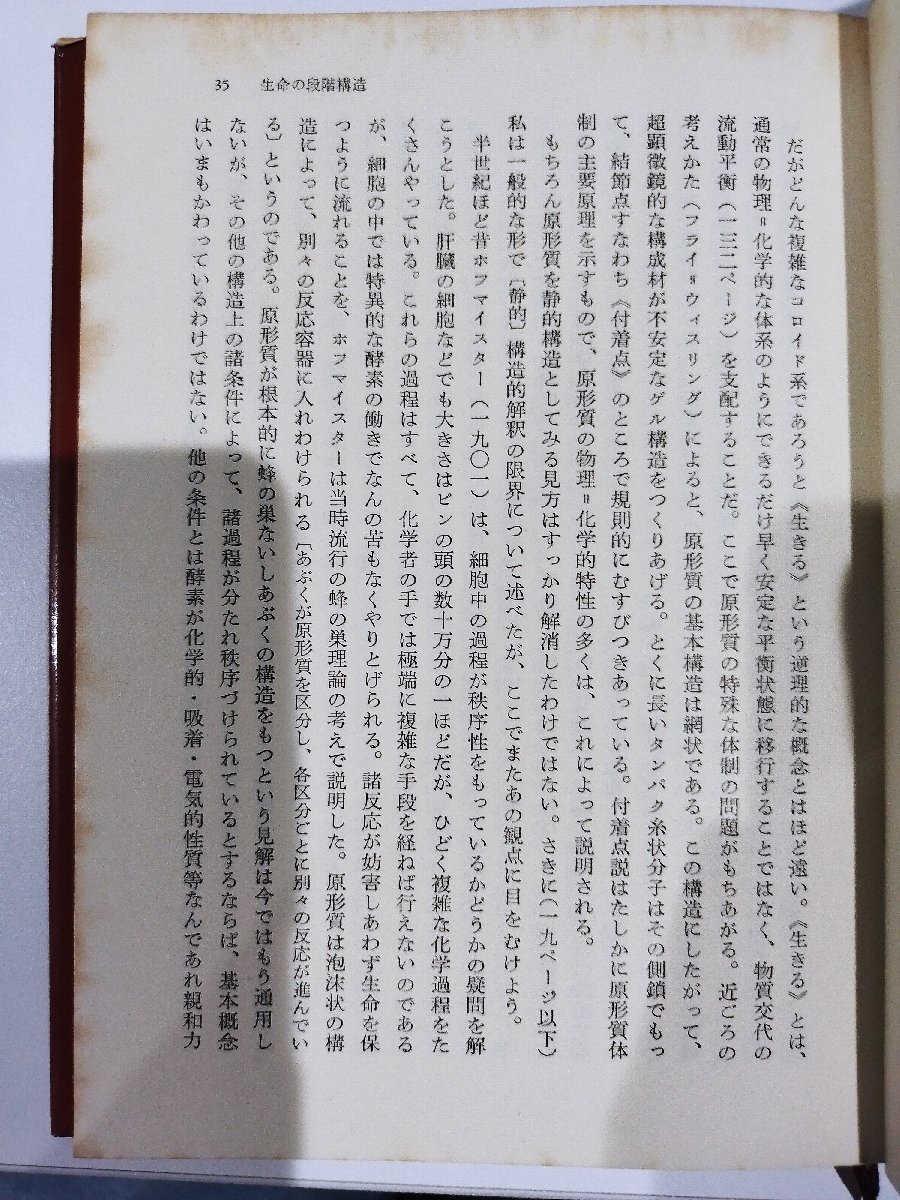 35 生命の段階構造
だがどんな複雑なコロイド系であろうと《生きる》という逆理的な概念とはほど遠い。《生きる》とは、
通常の物理＝化学的な体系のようにできるだけ早く安定な平衡状態に移行することではなく、物質交代の
流動平衡（一三二ページ）を支配することだ。ここで原形質の特殊な体制の問題がもちあがる。近ごろの
考えかた（フライ＝ウィスリング）によると、原形質の基本構造は網状である。この構造にしたがって、
超顕微鏡的な構成材が不安定なゲル構造をつくりあげる。とくに長いタンパク糸状分子はその側鎖でもっ
て、結節点すなわち《付着点》のところで規則的にむすびつきあっている。付着点説はたしかに原形質体
制の主要原理を示すもので、原形質の物理＝化学的特性の多くは、これによって説明される。
もちろん原形質を静的構造としてみる見方はすっかり解消したわけではない。さきに（一九ページ以下）
私は一般的な形で〔静的〕構造的解釈の限界について述べたが、ここでまたあの観点に目をむけよう。
半世紀ほど昔ホフマイスター（一九〇一）は、細胞中の過程が秩序性をもっているかどうかの疑問を解
こうとした。肝臓の細胞などでも大きさはピンの頭の数十万分の一ほどだが、ひどく複雑な化学過程をた
くさんやっている。これらの過程はすべて、化学者の手では極端に複雑な手段を経ねば行えないのである
が、細胞の中では特異的な酵素の働きでなんの苦もなくやりとげられる。諸反応が妨害しあわず生命を保
つように流れることを、ホフマイスターは当時流行の蜂の巣理論の考えで説明した。原形質は泡沫状の構
造によって、別々の反応容器に入れわけられる〔あぶくが原形質を区分し、各区分ごとに別々の反応が進んでい
る〕というのである。原形質が根本的に蜂の巣ないしあぶくの構造をもつという見解は今ではもう通用し
ないが、その他の構造上の諸条件によって、諸過程が分たれ秩序づけられているとするならば、基本概念
はいまもかわっているわけではない。他の条件とは酵素が化学的・吸着・電気的性質等なんであれ親和力